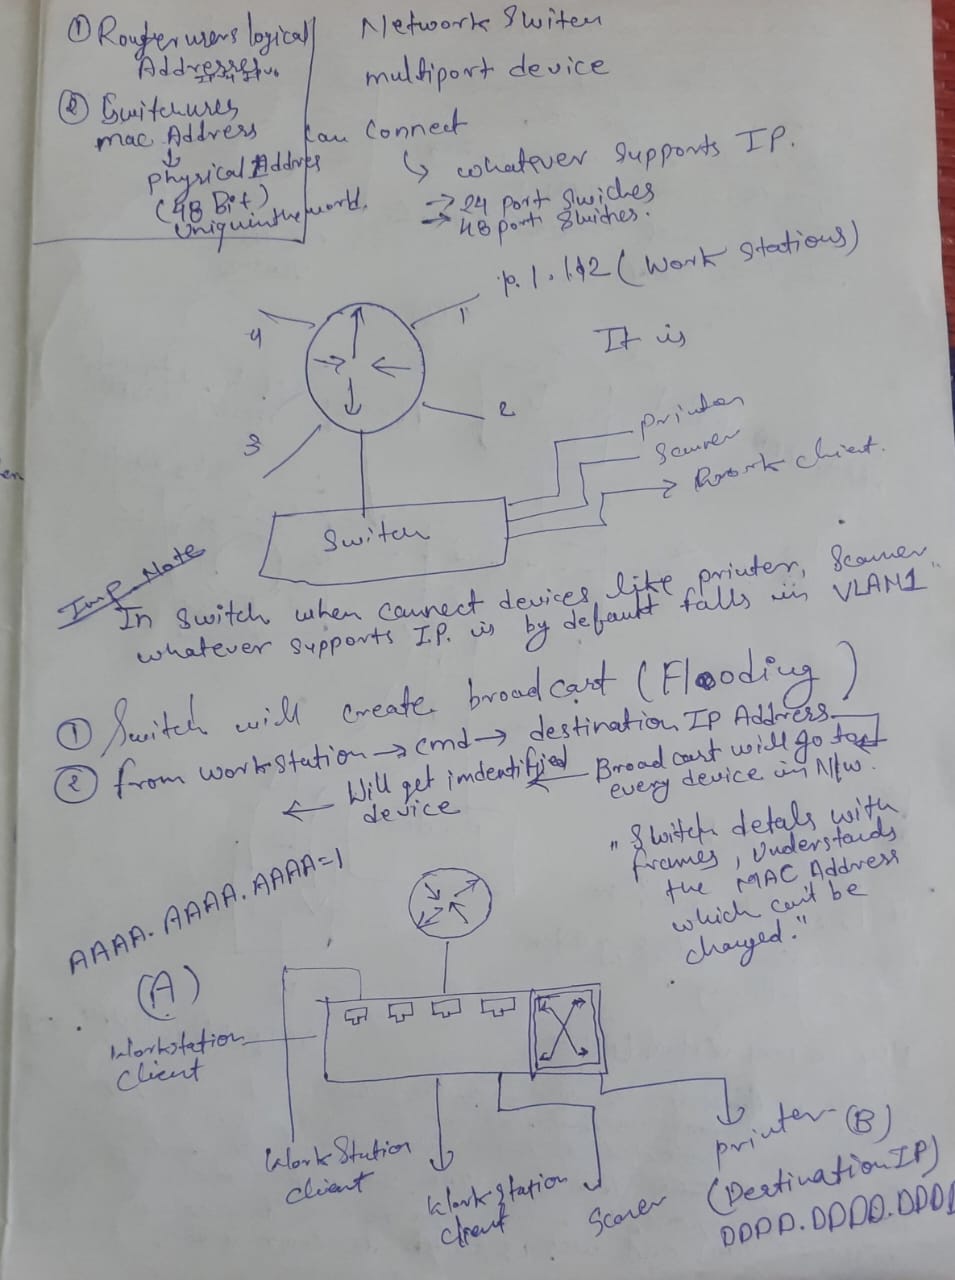 ① Router users logical
Addresses.
② Switch uses
mac Address
↓
Physical Addres
(48 Bit)
Uniquintheworld.
Network Switch
multiport device
Can Connect
↳ whatever supports IP.
→ 24 port Swiches
→ 48 port Swiches.
1.1.1.2 (Work Stations)
4
1
It is
2
3
printer
Scanner
client.
Switch
Imp Note
In Switch when connect devices like printer, Scanner
whatever supports IP. is by default falls in VLAN1"
① Switch will create broadcast (Flooding)
② from workstation → cmd → destination IP Address
← Will get imdentified ← Broadcast will go to
device every device in N/w.
"Switch detals with
frames, Understands
the MAC Address
which can't be
changed."
AAAA.AAAA.AAAA=1
(A)
Workstation
Client
WorkStation
client
WorkStation
client
Scaner
printer (B)
(Destination IP)
DDDD.DDDD.DDDD